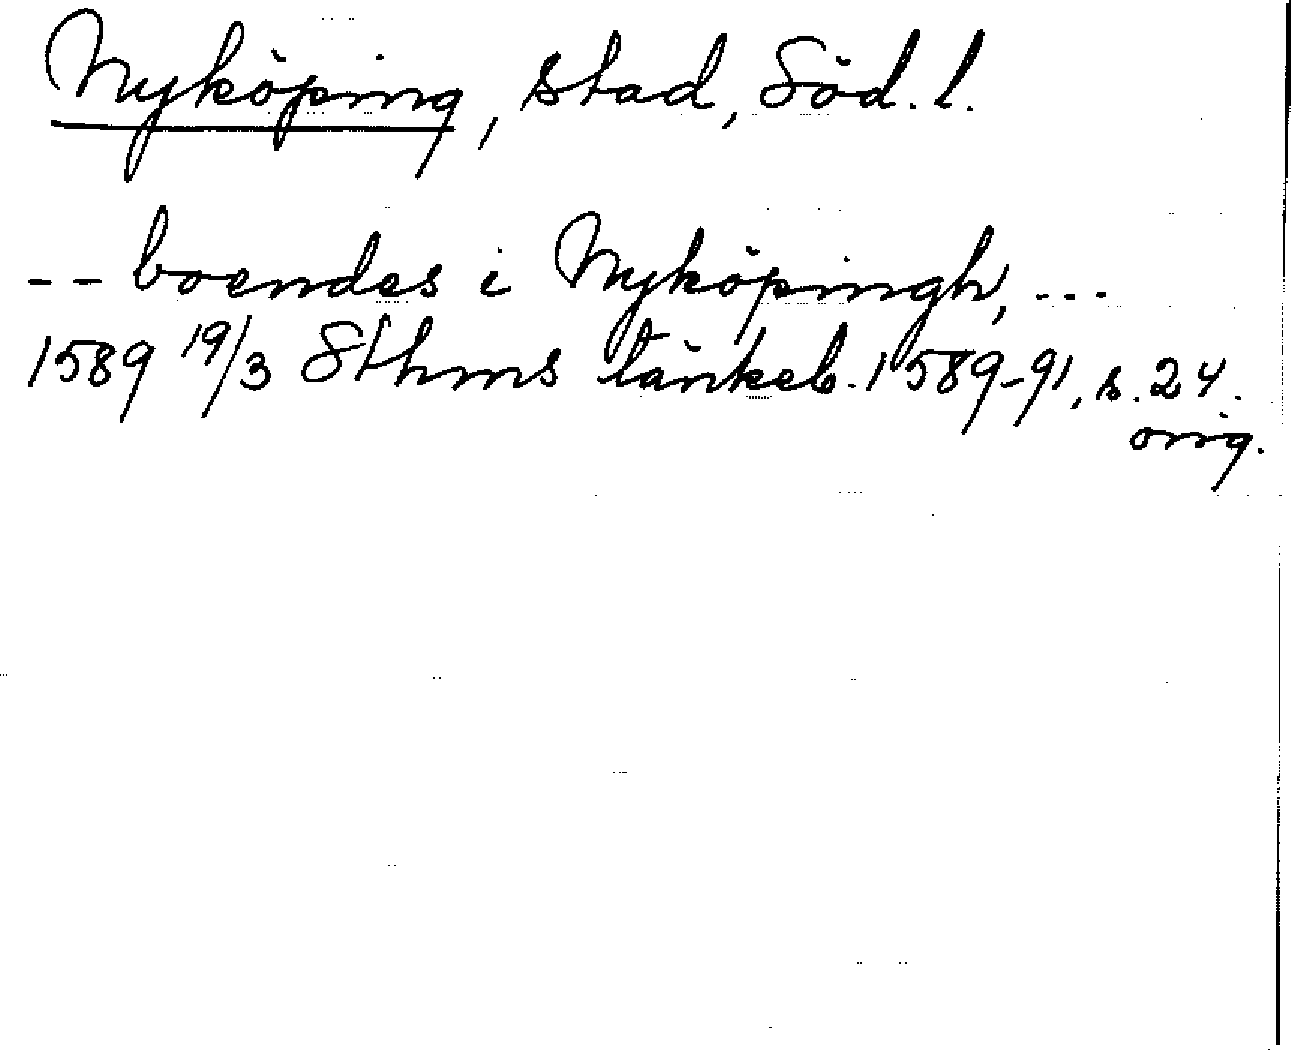 Nyköping, stad, Söd. l.
-- boendes i Nyköpingh, ...
1589 19/3 Sthms tänkeb. 1589-91, s. 24.
orig.